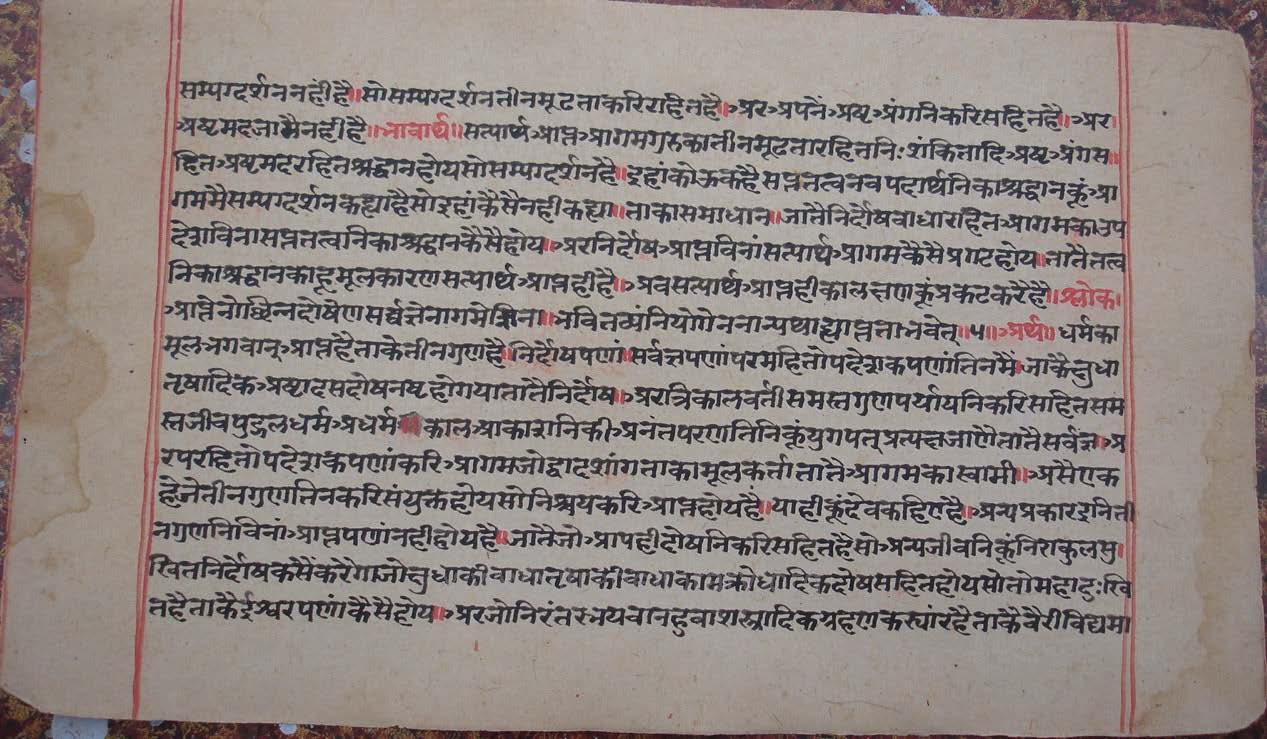 सम्यग्दर्शननहींहै॥सोसम्यग्दर्शनतीनमूढताकरिरहितहै॥अर अपनें अष्ट अंगनिकरिसहितहै॥अर
अष्टमदजामैनहीहै॥भावार्थ॥सत्यार्थ आप्त आगमगुरुकातीनमूढतारहितनिःशंकितादि अष्ट अंगस॥
हित अष्टमदरहितश्रद्धानहोयसोसम्यग्दर्शनहै॥इहांकोऊकहैसप्ततत्वनवपदार्थनिकाश्रद्धानकूं आ
गममैसम्यग्दर्शनकह्याहैसोइहांकैसैनहीकह्या॥ताकासमाधान॥जातैनिर्दोषबाधारहित आगमकाउप
देशविनासप्ततत्वनिकाश्रद्धानकैसैहोय॥अरनिर्दोष आप्तविनांसत्यार्थ आगमकैसेप्रगटहोय॥तातैतत्व
निकाश्रद्धानकाहूमूलकारणसत्यार्थ आप्तहीहै॥अबसत्यार्थ आप्तहीकालक्षणकूंप्रकटकरैहै॥श्लोक।
आप्तेनोच्छिन्नदोषेणसर्वज्ञेनागमेशिना॥भवितव्यंनियोगेननान्यथाह्याप्तताभवेत्॥५॥अर्थ॥धर्मका
मूलभगवान् आप्तहैताकेतीनगुणहै॥निर्दोषपणां॥सर्वज्ञपणांपरमहितोपदेशकपणांतिनमैं॥जाकैक्षुधा
तृषादिक अष्टादसदोषनष्टहोगयातातैनिर्दोष॥अरत्रिकालवर्तीसमस्तगुणपर्यायनिकरिसहितसम
स्तजीवपुद्गलधर्म अधर्म॥काल आकाशनिकी अनंतपरणतिनिकूंयुगपत् प्रत्यक्षजाणैतातैसर्वज्ञ॥अ
रपरहितोपदेशकपणांकरि आगमजोद्वादशांगताकामूलकर्त्तातातै आगमकास्वामी॥असैएक
हेजेतीनगुणतिनकरिसंयुक्तहोयसोनिश्चयकरि आप्तहोयहै॥याहीकूंदेवकहिएहै॥अन्यप्रकारइनिती
नगुणनिविनां आप्तपणांनहीहोयहै॥जातैजो आपहीदोषनिकरिसहितहैसो अन्यजीवनिकूंनिराकुलसु।
खितनिर्दोषकसैंकरेगाजोक्षुधाकीबाधातृषाकीबाधाकामक्रोधादिकदोषसहितहोयसोतोमहादुःखि
तहैताकैईश्वरपणांकैसैहोय॥अरजोनिरंतरभयवानहुवाशस्त्रादिकग्रहणकस्यांरहैताकैवैरीविद्यमा